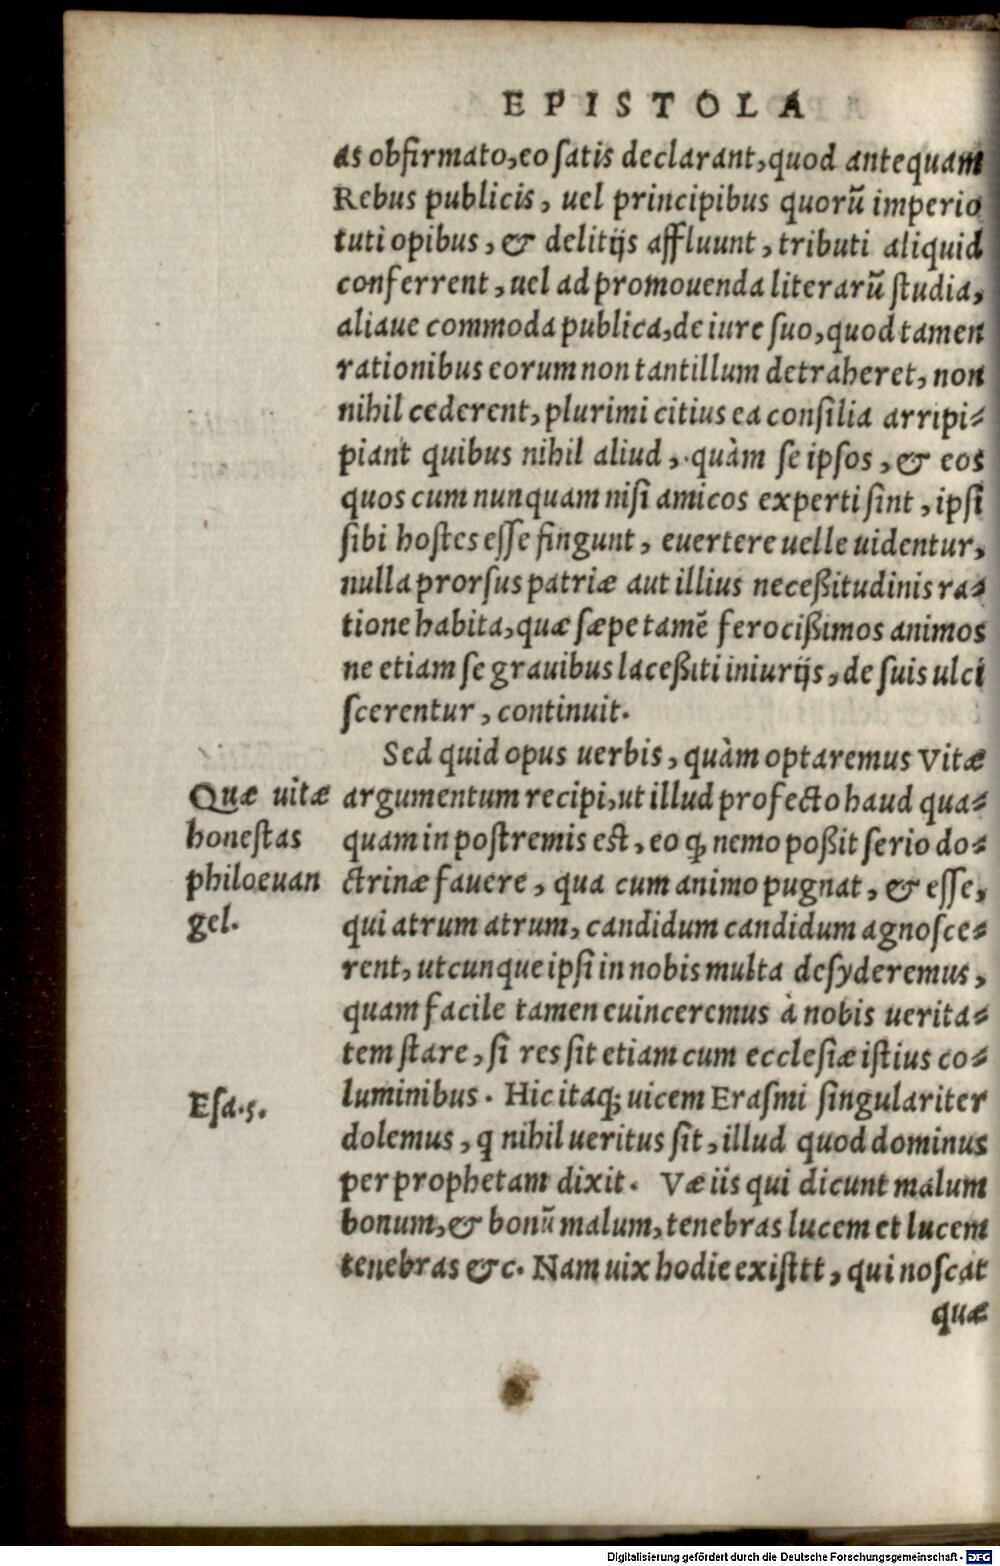 EPISTOLA
as obfirmato, eo ſatis declarant, quod antequam
Rebus publicis, uel principibus quorū imperio
tuti opibus, & delitijs affluunt, tributi aliquid
conferrent, uel ad promouenda literarū ſtudia,
aliaue commoda publica, de iure ſuo, quod tamen
rationibus eorum non tantillum detraheret, non
nihil cederent, plurimi citius ea conſilia arripi-
piant quibus nihil aliud, quàm ſe ipſos, & eos
quos cum nunquam niſi amicos experti ſint, ipſi
ſibi hoſtes eſſe fingunt, euertere uelle uidentur,
nulla prorſus patriæ aut illius neceßitudinis ra-
tione habita, quæ ſæpe tamē ferocißimos animos
ne etiam ſe grauibus laceßiti iniurijs, de ſuis ulci
ſcerentur, continuit.
Sed quid opus uerbis, quàm optaremus Vitæ
Quæ uitæ
honeſtas
philoeuan
gel.
argumentum recipi, ut illud profecto haud qua-
quam in poſtremis est, eo ꝙ nemo poßit ſerio do-
ctrinæ fauere, qua cum animo pugnat, & eſſe,
qui atrum atrum, candidum candidum agnoſce-
rent, utcunque ipſi in nobis multa deſyderemus,
quam facile tamen euinceremus à nobis uerita-
tem ſtare, ſi res ſit etiam cum eccleſiæ iſtius co-
Eſa.5.
luminibus. Hic itaq; uicem Eraſmi ſingulariter
dolemus, q nihil ueritus ſit, illud quod dominus
per prophetam dixit. Væ iis qui dicunt malum
bonum, & bonū malum, tenebras lucem et lucem
tenebras &c. Nam uix hodie exiſtit, qui noſcat
quæ
Digitalisierung gefördert durch die Deutsche Forschungsgemeinschaft - DFG